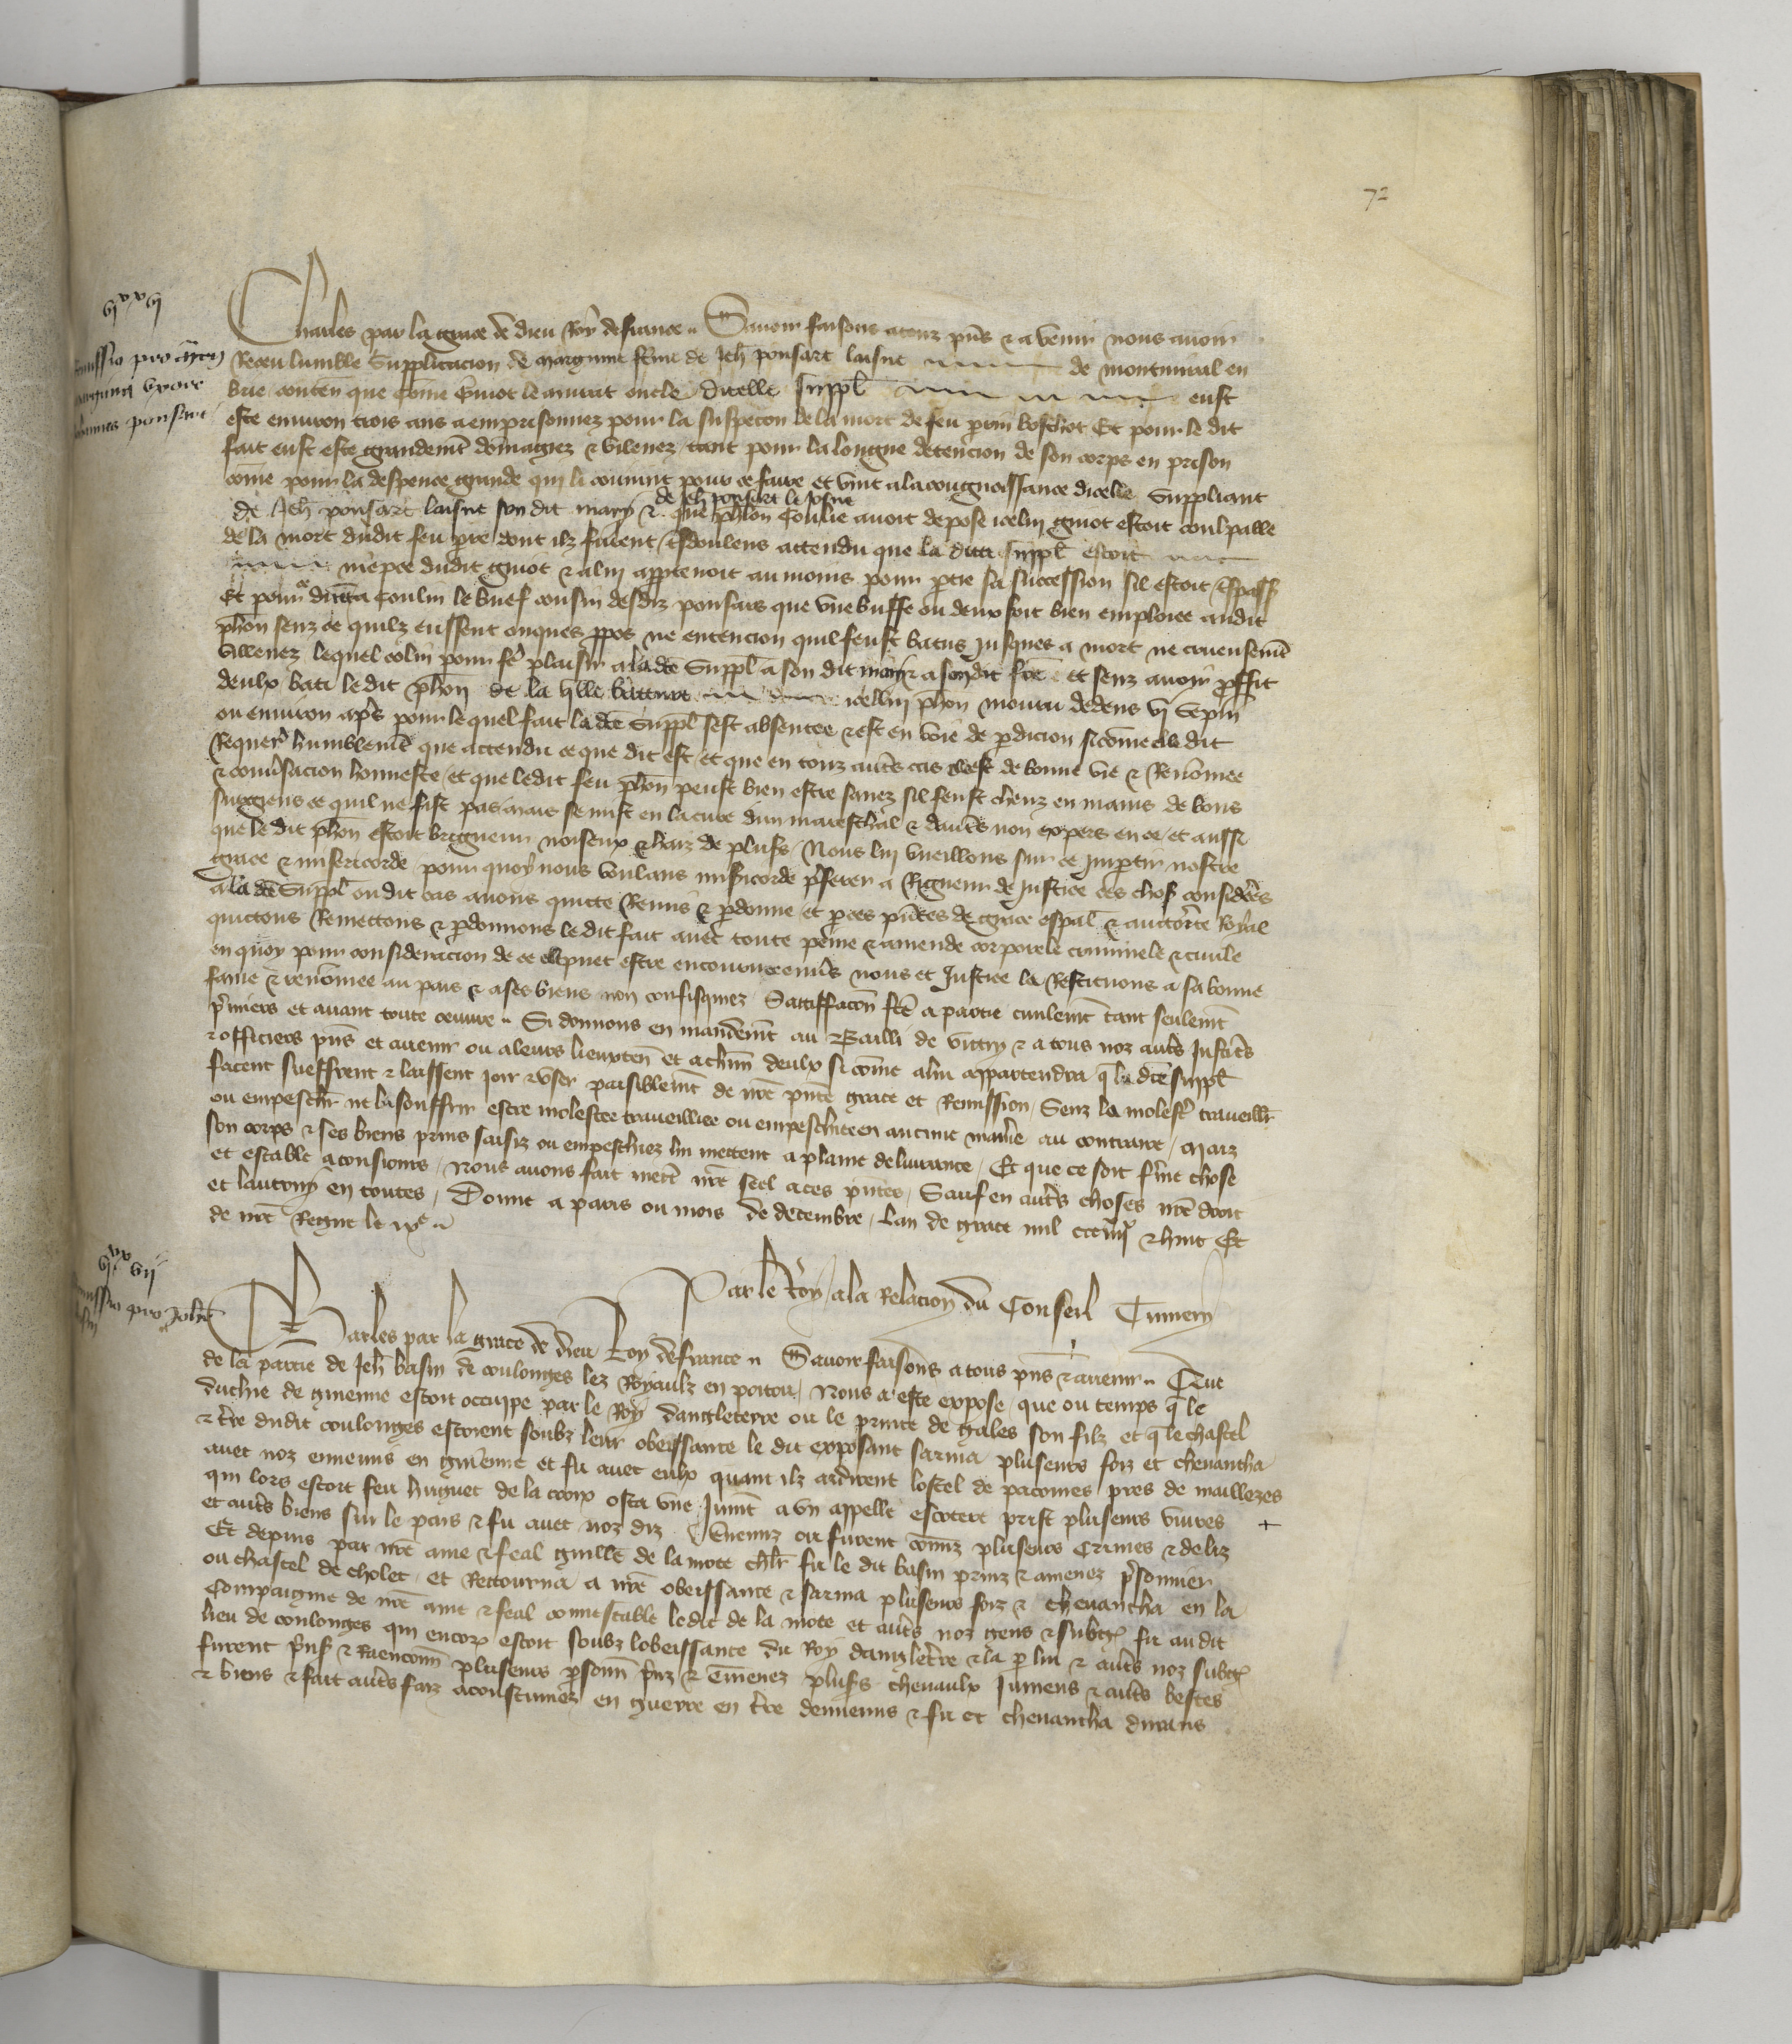 72
vi xx vi
Remissio pro
uxore
ponsart
Charles par la grace de dieu Roy de france Savoir faisons a touz pns & a venir nous avoir
Receu lumble Supplicacion de marguine feme de Jeh ponsart laisne de montmirail en
brie conten que come Guiot le amirat oncle dicelle suppl eust
este environ trois ans a emprisonnez pour la suspecon de la mort de feu prin boschot Et pour le dit
fait eust este grandemt domagiez & vilenez tant pour la longue detencion de son corps en prison
come pour la despence grande qui li convint pour ce faire et vint a la congnoissance dicelle suppliant
de Jeh ponsart le Josne
de Jeh ponsart laisne son dit mary & que phlon Coulie avoit depose icelui guiot estoit coulpable
de la mort dudit feu pre dont ilz furent dolens attendu que la dicte suppl estoit
niepce dudit guiot & a lui apptenoit au moins pour ptie sa succession sil estoit tspasse
Et pour dicta Coulin le buef cousin desdiz ponsars que une buffe ou deux soit bien emploiee audit
phon senz ce quilz eussent onques ppos ne entencion quil feust batus Jusques a mort ne crueusemt
villenez lequel colin pour fe plaisir a la dce Suppl a son dit mary & a sondit fre et senz avoir proffit
deulx bati le dit phon de la qlle bateure icellui phon mouru dedens vi sepm
ou environ aps pour lequel fait la dce suppl sest absentee & est en voie de pdicion si come elle dit
Requert humblemt que attendu ce que dit est et que en touz auts cas elle est de bonne vie & Renomee
& conversacion honneste et que ledit feu phon peust bien estre sanez sil feust cheuz en mains de bons
surgiens ce quil ne fist pas mais se mist en la cure dun mareschal & dauts non expers en ce et aussi
que le dit phon estoit brigueur noiseux & haiz de plus Nous lui vueillons sur ce Impartir nostre
grace & misericorde pour quoy nous voulans misicorde pferer a Rigueur de Justice ces chos considerees
a la dce Suppl ou dit cas avons quitte Remis & pdonne et p ces pntes de grace espal & auctorite Royal
quittons Remettons & pdonnons le dit fait avec toute peine & amende corporele criminele & civile
en quoy pour consideracion de ce elle puet estre encourue envs nous et Justice la Restituons a sa bonne
fame & renomee au pais & a ses biens non confisquez Satiffacon fce a partie civilemt tant seulemt
pmiers et avant toute oeuvre Si donnons en mandemt au Bailli de vittry & a tous noz auts Justics
& officiers pns et avenir ou a leurs lieuxten et a chun deulx si come a lui appartendra q la dce suppl
facent sueffrent & laissent joir & user paisiblemt de nre pnte grace et Remission Senz la molest travaillr
ou empeschr ne la souffrir estre molestee travaillee ou empeschee en aucune maiere au contraire Maiz
son corps & ses biens prins saisiz ou empeschiez lui mettent a plaine delivrance Et que ce soit fme chose
et estable a tousiours Nous avons fait mett nre seel a ces pntes Sauf en auts choses nre droit
et lautruy en toutes Donne a paris ou mois de decembre Lan de grace mil ccciiiixx & huit Et
de nre Regne le ixe
Par le Roy a la Relacion du Conseil
vi xx vii
Remissio pro Johe
Charles par la grace de dieu Roy de france Savoir faisons a tous pns & avenir Que
de la partie de Jeh basin de coulonges lez Royaulz en poitou Nous a este expose que ou temps q le
duchie de guienne estoit occupe par le Roy dangleterre ou le prince de gales son filz et q le chastel
& tre dudit coulonges estoient soubz leur obeissance le dit exposant sarma pluseurs foiz et chevaucha
avec noz ennemis en guienne et fu avec eulx quant ilz ardirent lostel de pacomes pres de maillezes
qui lors estoit feu huguet de la croix osta une Jumt a un appelle escotere prist pluseurs vivres
et auts biens sur le pais & fu avec noz diz Ennemiz ou furent comiz pluseurs Crimes & deliz +
Et depuis par nre ame & feal guille de la mote chlr fu le dit basin prinz & amenez psonnier
ou chastel de cholet et Retourna a nre obeissance & sarma pluseurs foiz & chevaucha en la
Compaignie de nre ame & feal connestable ledit de la mote et auts noz gens & subgz fu audit
lieu de coulonges qui encore estoit soubz lobeissance du Roy dangletre & la p lui & auts noz subgz
furent pns & Raenconn pluseurs psonn prinz & emmenez plus chevaulx Jumens & auts bestes
& biens & fait auts faiz acoustumez en guerre en tre dennemis & fu et chevaucha durans